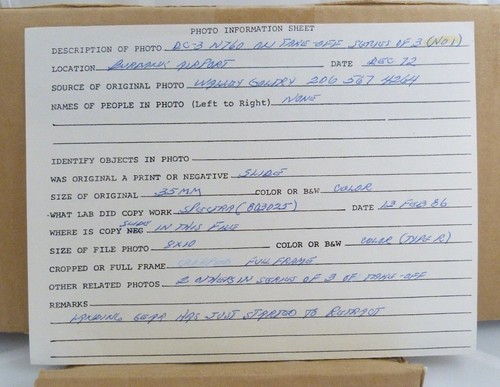 PHOTO INFORMATION SHEET
DESCRIPTION OF PHOTO DC-3 N760 ON TAKE-OFF SERIES OF 3 (NO 1)
LOCATION BURBANK AIRPORT DATE DEC 72
SOURCE OF ORIGINAL PHOTO 206 567 4264
NAMES OF PEOPLE IN PHOTO (Left to Right) NONE
IDENTIFY OBJECTS IN PHOTO
WAS ORIGINAL A PRINT OR NEGATIVE SLIDE
SIZE OF ORIGINAL 35MM COLOR OR B&W COLOR
WHAT LAB DID COPY WORK SPECTRA (803025) DATE 13 FEB 86
SLIDE
WHERE IS COPY NEG IN THIS FILE
SIZE OF FILE PHOTO 8X10 COLOR OR B&W COLOR (TYPE R)
CROPPED OR FULL FRAME FULL FRAME
OTHER RELATED PHOTOS 2 OTHERS IN SERIES OF 3 OF TAKE-OFF
REMARKS
LANDING GEAR HAS JUST STARTED TO RETRACT